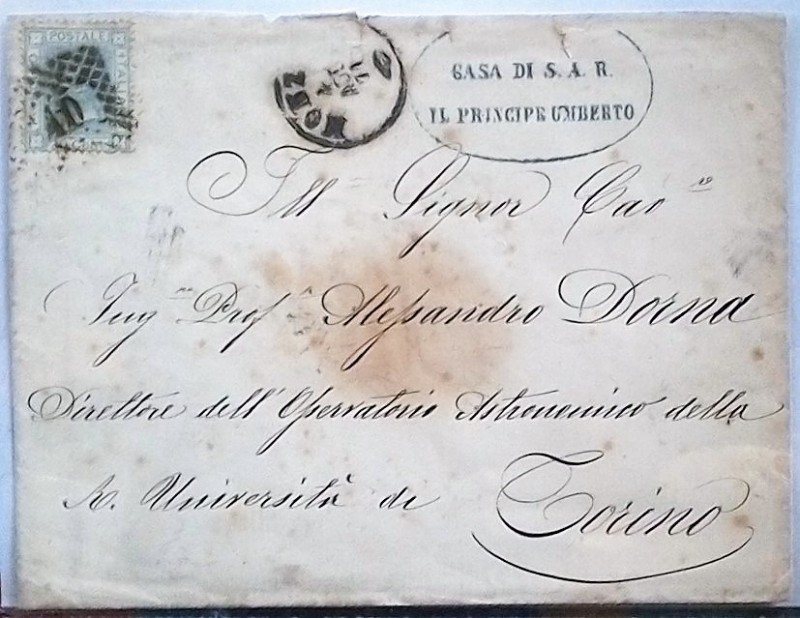 POSTALE
10
MONZ
CASA DI S. A. R.
IL PRINCIPE UMBERTO
Ill Signor Cav re
Ing re Prof re Alessandro Dorna
Direttore dell'Osservatorio Astronomico della
R. Università di Torino